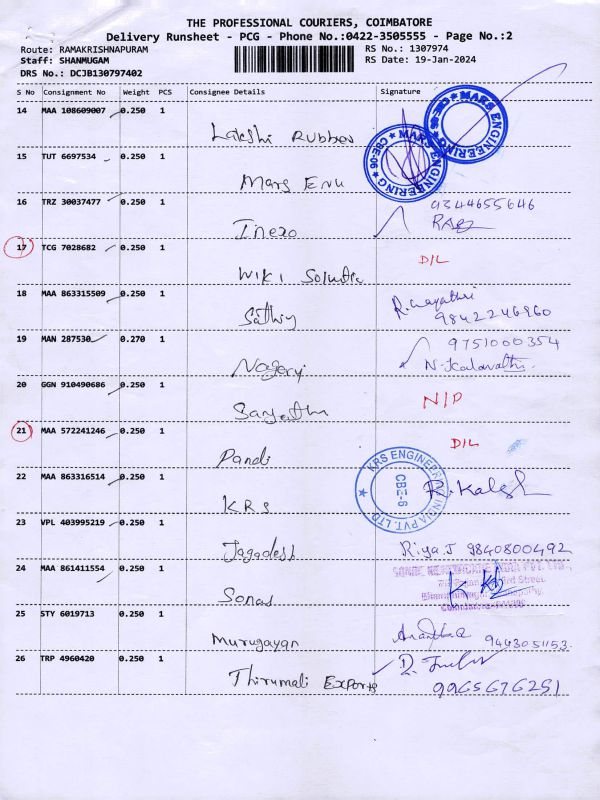 THE PROFESSIONAL COURIERS, COIMBATORE
Delivery Runsheet - PCG - Phone No.:0422-3505555 - Page No.:2
Route: RAMAKRISHNAPURAM RS No.: 1307974
Staff: SHANMUGAM RS Date: 19-Jan-2024
DRS No.: DCJB130797402
S No Consignment No Weight PCS Consignee Details Signature
14 MAA 108609007 0.250 1
Lakshi Rubber
MARS ENGINEERING CBE-06
15 TUT 6697534 0.250 1
Mars Enu
MARS ENGINEERING CBE-06
16 TRZ 30037477 0.250 1
Inexo
9344655646
17 TCG 7028682 0.250 1
Wiki
D/L
18 MAA 863315509 0.250 1
Sathiy
R. Gayathri
9842246960
19 MAN 287530 0.270 1
9751000354
N. Kalavathi
20 GGN 910490686 0.250 1
N/D
21 MAA 572241246 0.250 1
Pandi
D/L
22 MAA 863316514 0.250 1
KRS
KRS ENGINEERS INDIA PVT. LTD CBE-6
23 VPL 403995219 0.250 1
Jagadesh
Riya.J 9840800492
24 MAA 861411554 0.250 1
Sonas
25 STY 6019713 0.250 1
Murugayan
9443051153
26 TRP 4960420 0.250 1
Thirumali Exports
9965676251